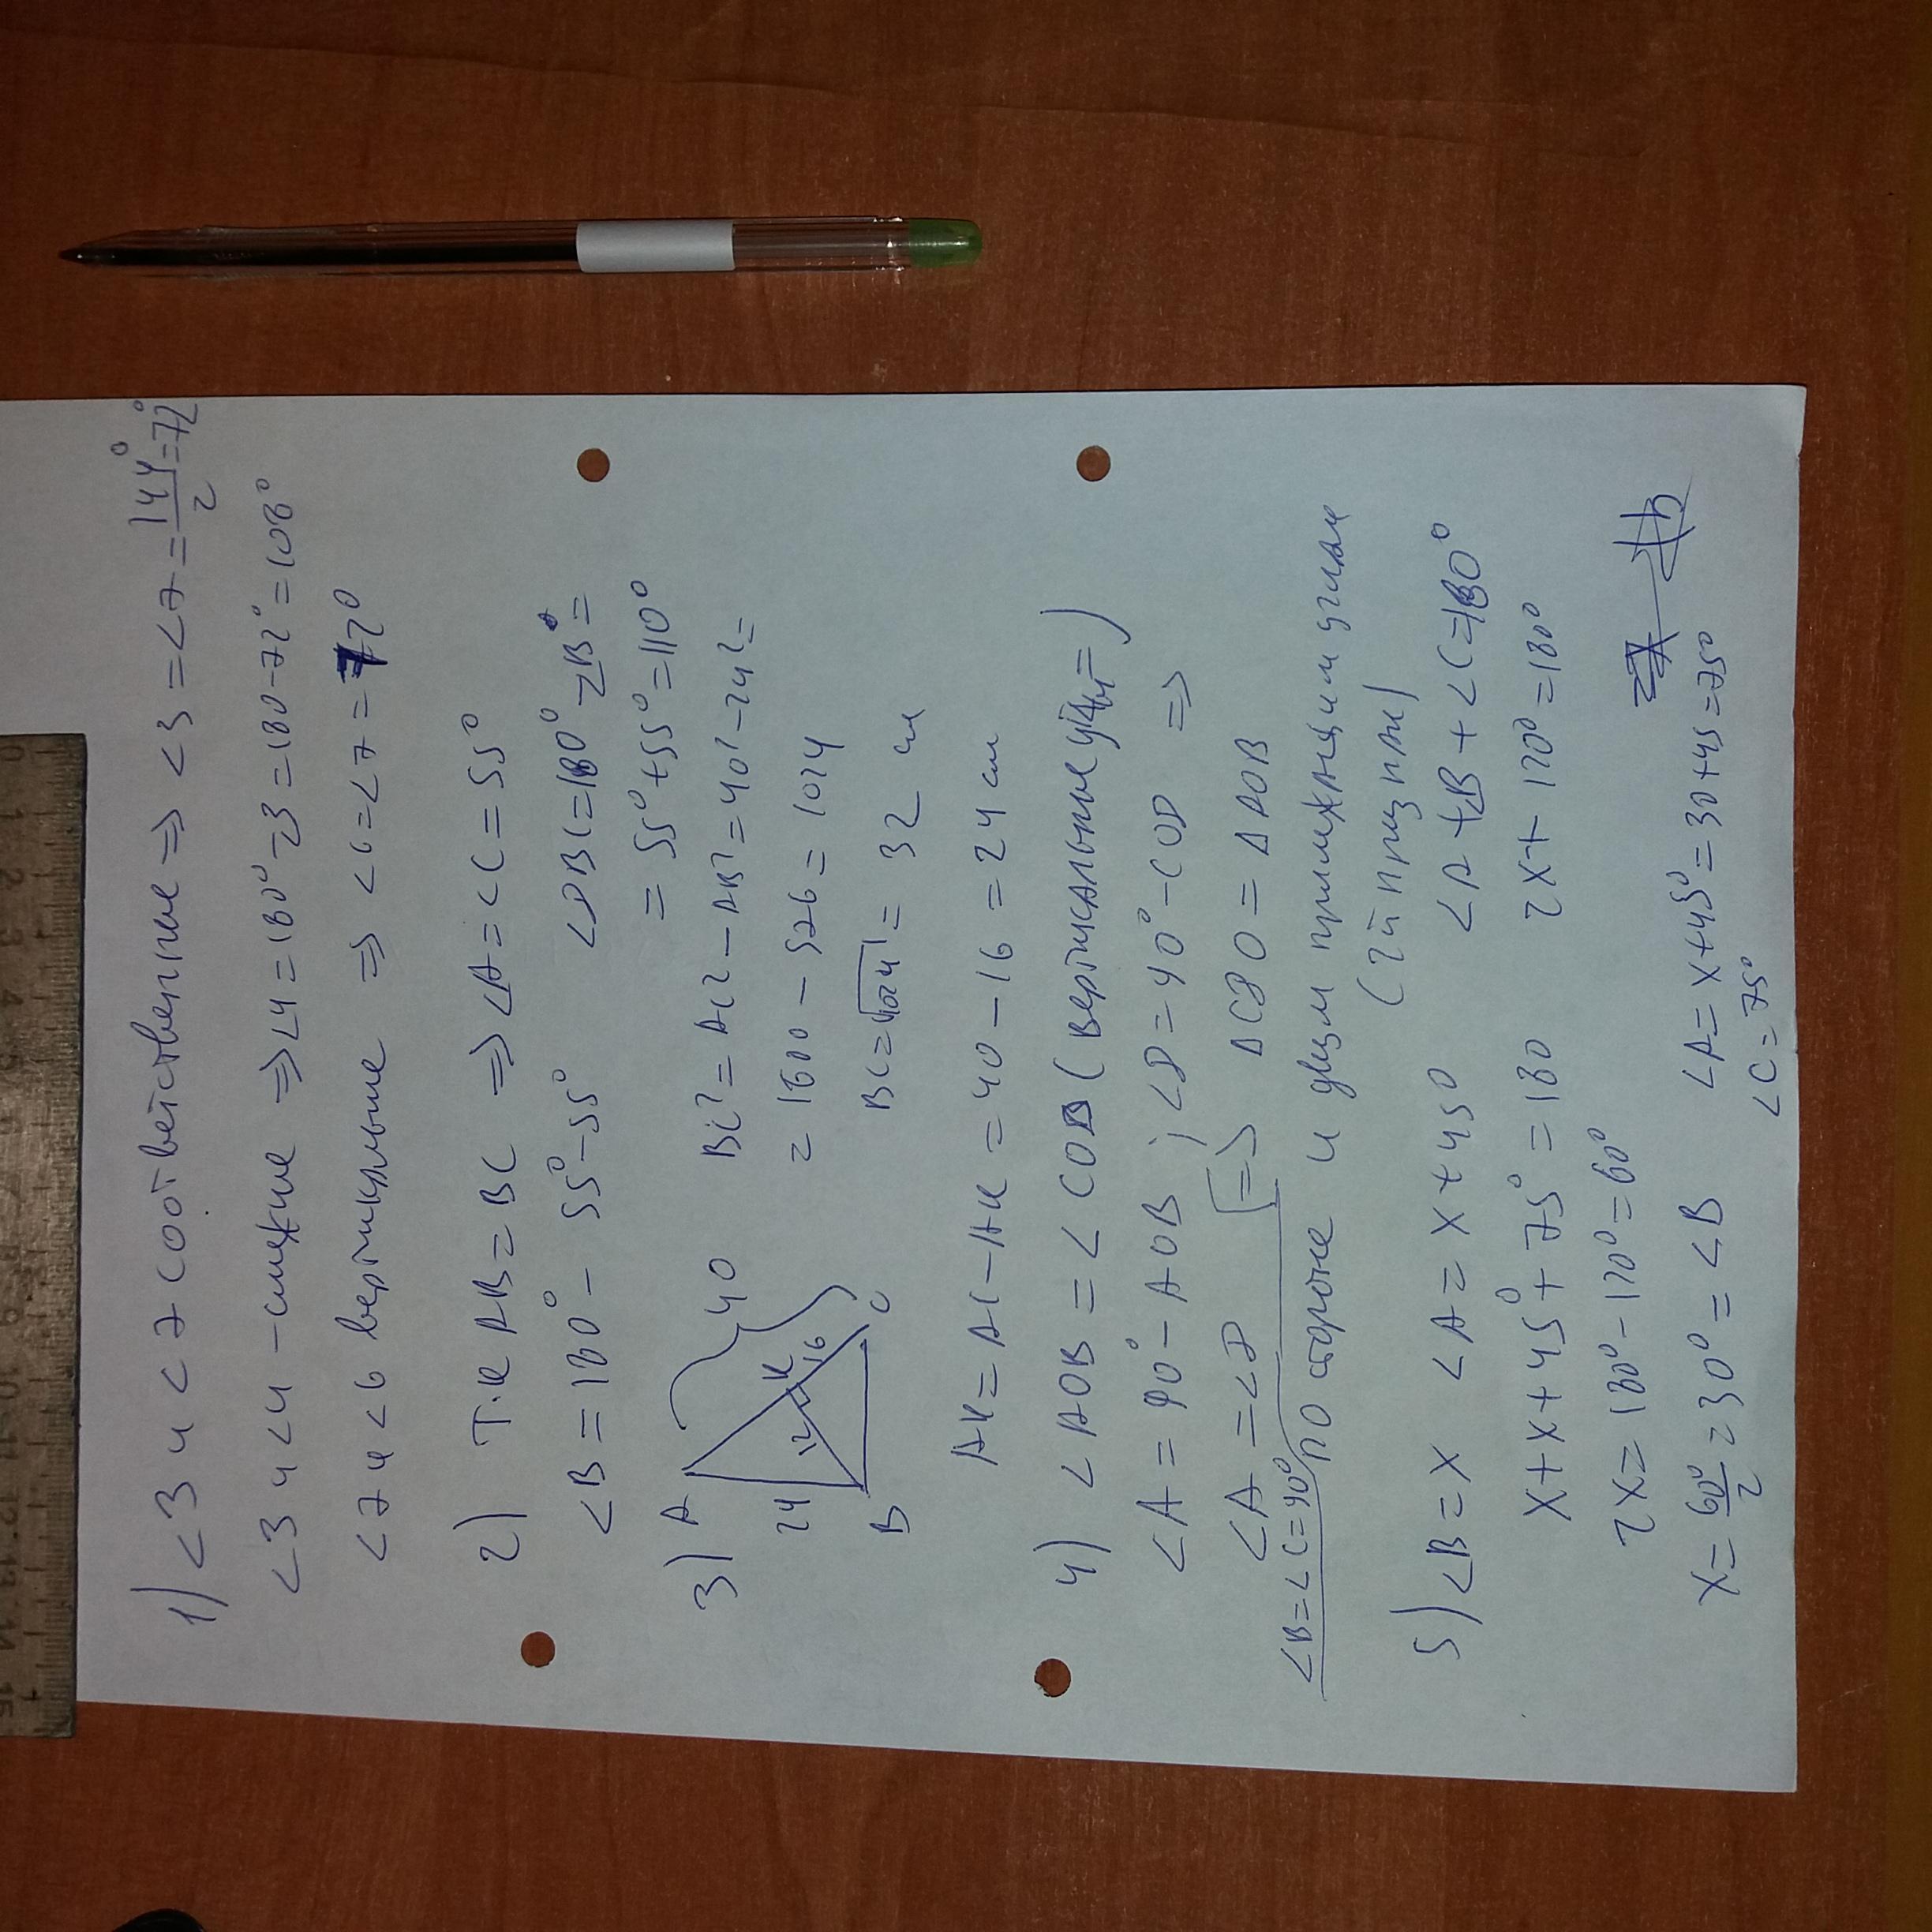 1) <3 и <7 соответственные => <3 = <7 = 144°/2 = 72°
<3 и <4 - смежные => <4 = 180° - <3 = 180 - 72° = 108°
<7 и <6 вертикальные => <6 = <7 = 720
2) Т.к AB = BC => <A = <C = 55°
<B = 180° - 55° - 55°
<DBC = 180° - <B =
= 55° + 55° = 110°
3) A 40 24 12 K 16 B C
BC² = AC² - AB² = 40² - 24² =
= 1600 - 576 = 1024
BC = √1024 = 32 см
AK = AC - HK = 40 - 16 = 24 см
4) <AOB = < COD (вертикальные углы =)
<A = 90° - AOB ; <D = 90° - COD =>
<A = <D => Δ CDO = Δ AOB
<B = <C = 90°
по стороне и двум прилежащим углам
(2й признак)
5) <B = x <A = x + 450 <A + <B + <C = 180°
x + x + 45° + 75° = 180 2x + 120° = 180°
2x = 180° - 120° = 60°
x = 60°/2 = 30° = <B <A = x + 45° = 30 + 45 = 75°
<C = 75°
0 1 2 3 4 5 8 9 10 11 12 13 14 15